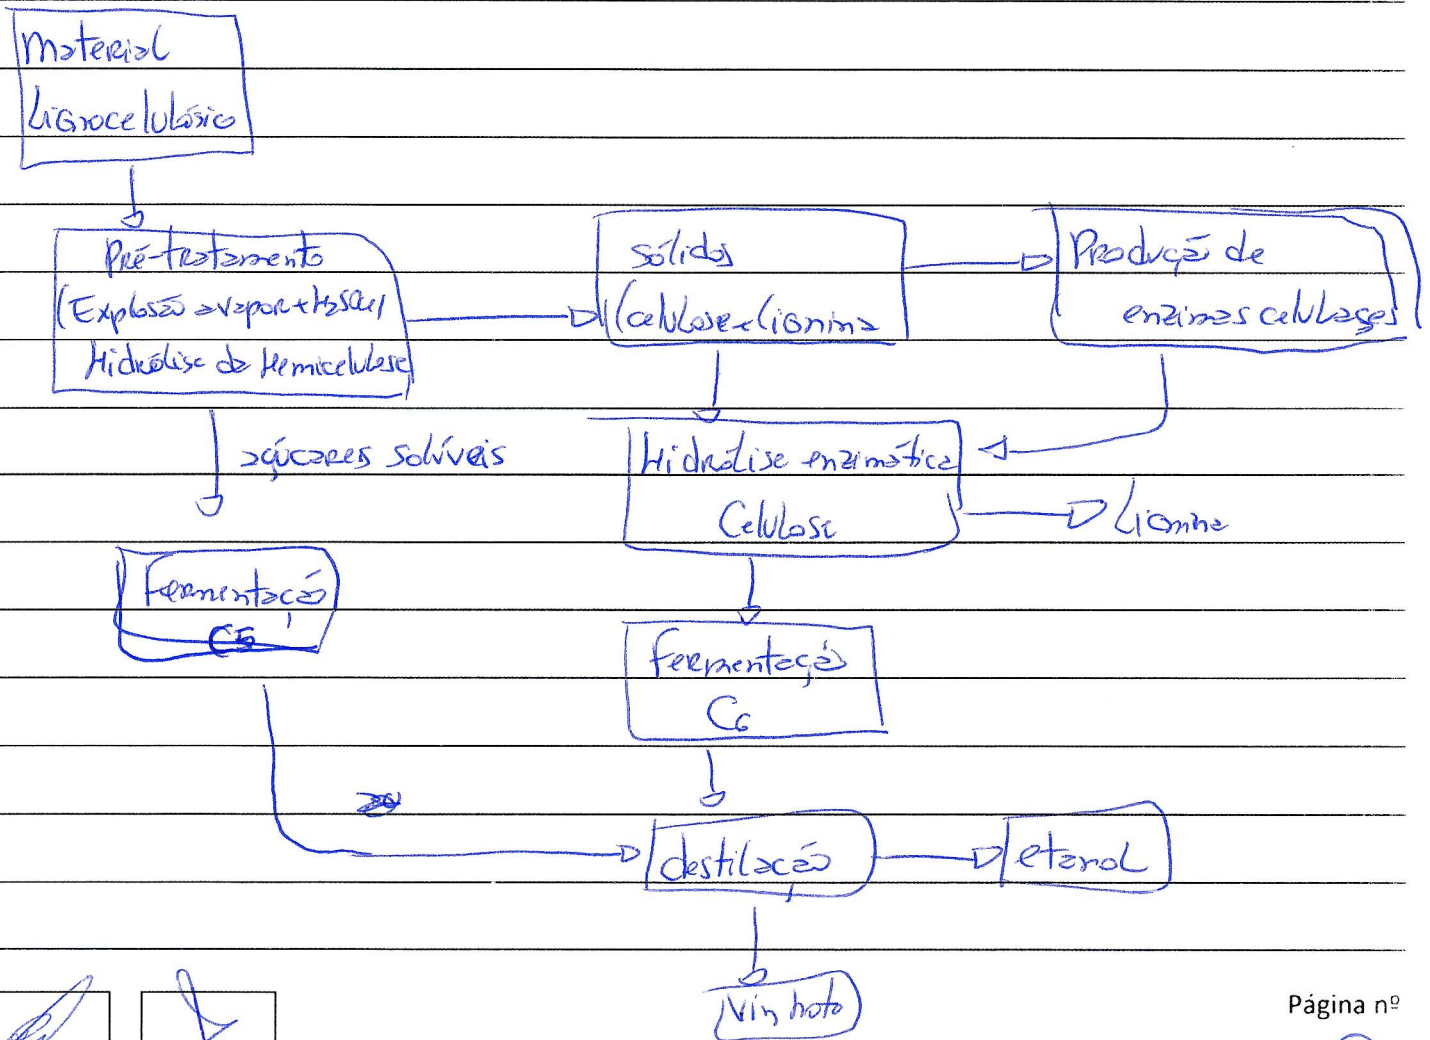 Material
Lignocelulósico
Pré-tratamento
(Explosão a vapor + H2SO4)
Hidrólise da Hemicelulose
sólidos
(celulose + lignina
Produção de
enzimas celulases
açúcares solúveis
Hidrólise enzimática
Celulose
Lignina
Fermentação
C5
Fermentação
C6
destilação
etanol
Vinhoto
Página nº